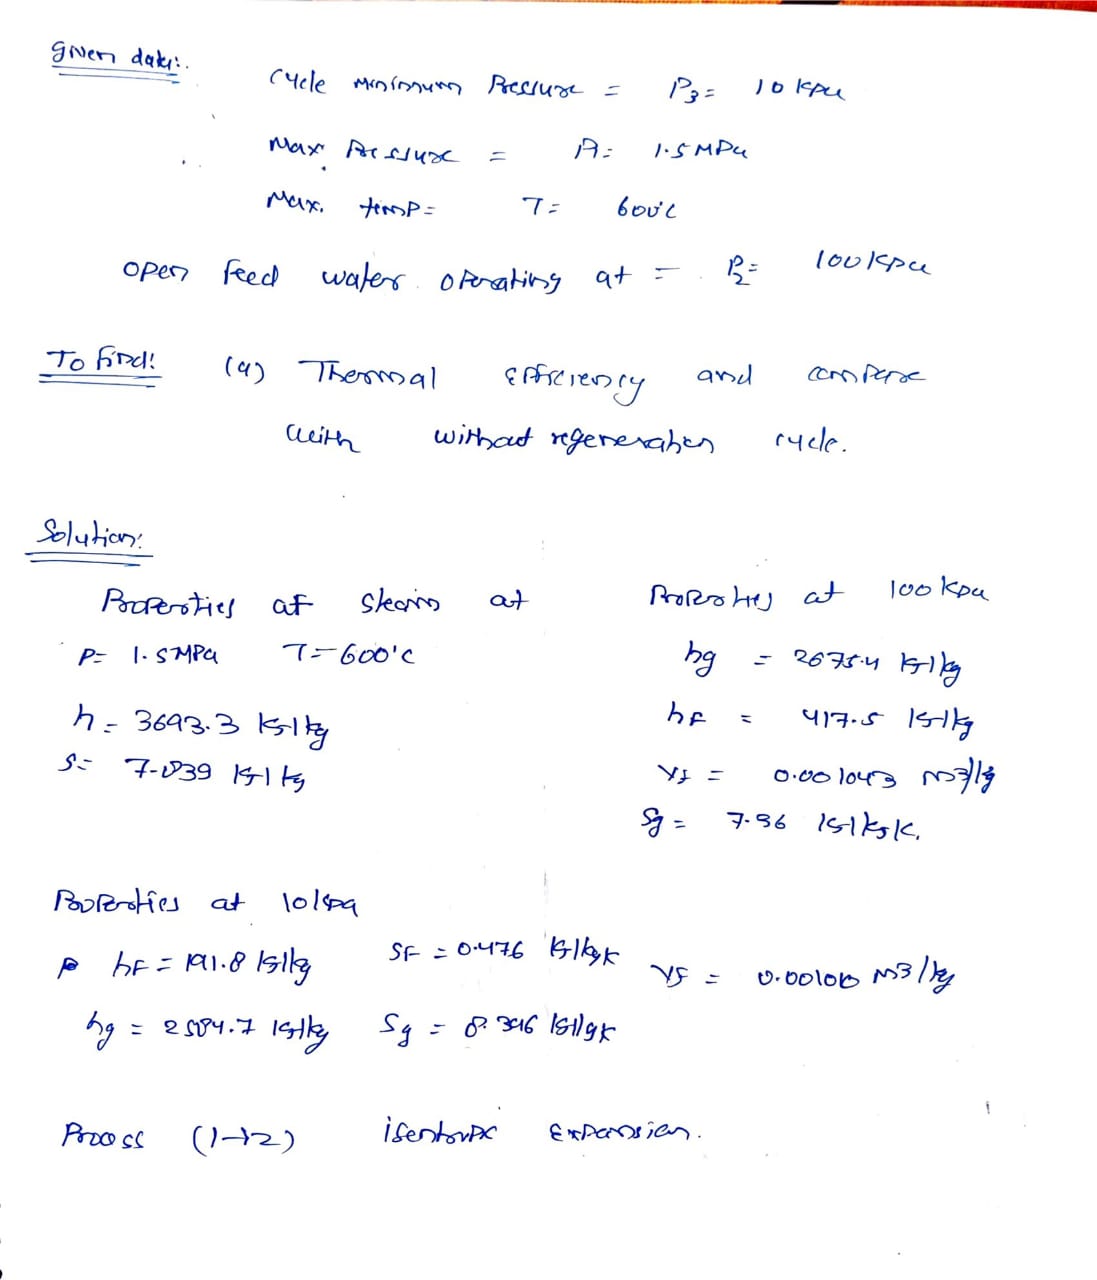 given data:
Cycle minimum Pressure = P3 = 10 kpa
Max Pressure = P1 = 1.5 MPa
Max. temp = T = 600°C
open feed water operating at = P2 = 100 kpa
To find: (a) Thermal Efficiency and compare
with without regeneration cycle.
Solution:
Properties of steam at
P = 1.5 MPa T = 600°C
h = 3693.3 KJ/kg
s = 7.839 KJ/kg
Properties at 100 Kpa
hg = 2675.4 KJ/kg
hf = 417.5 KJ/kg
vf = 0.001043 m3/kg
Sg = 7.36 KJ/kgK.
Properties at 10 kpa
hf = 191.8 KJ/kg Sf = 0.476 KJ/kgK vf = m3/kg
hg = 2584.7 KJ/kg Sg = KJ/kgK
Process (1→2) isentropic Expansion.